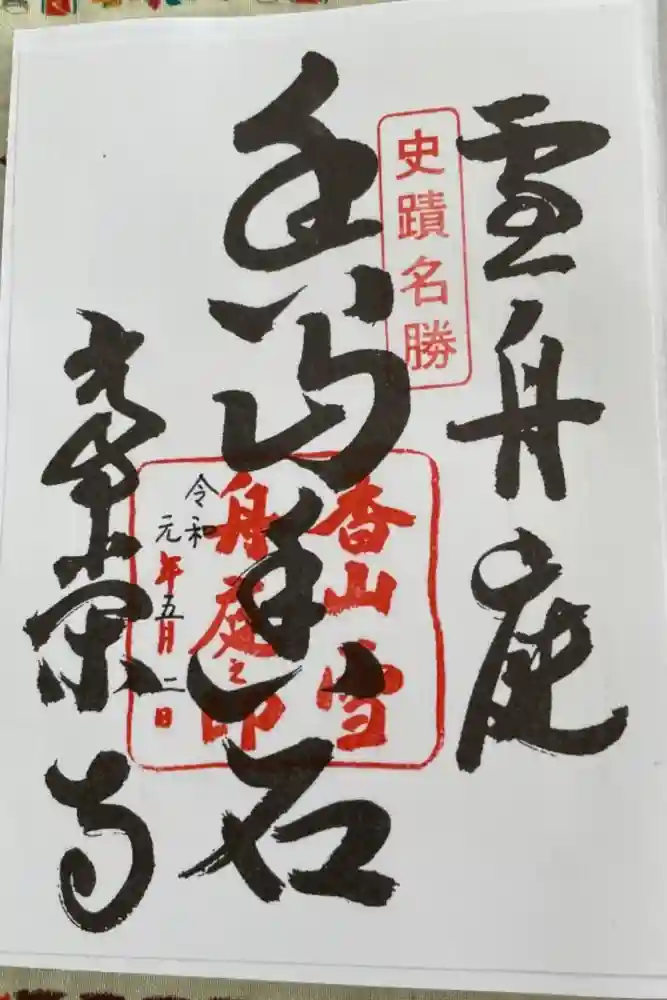 雪舟庭
史蹟名勝
香山雪
舟庭之印
令和
元年五月二日
常栄寺